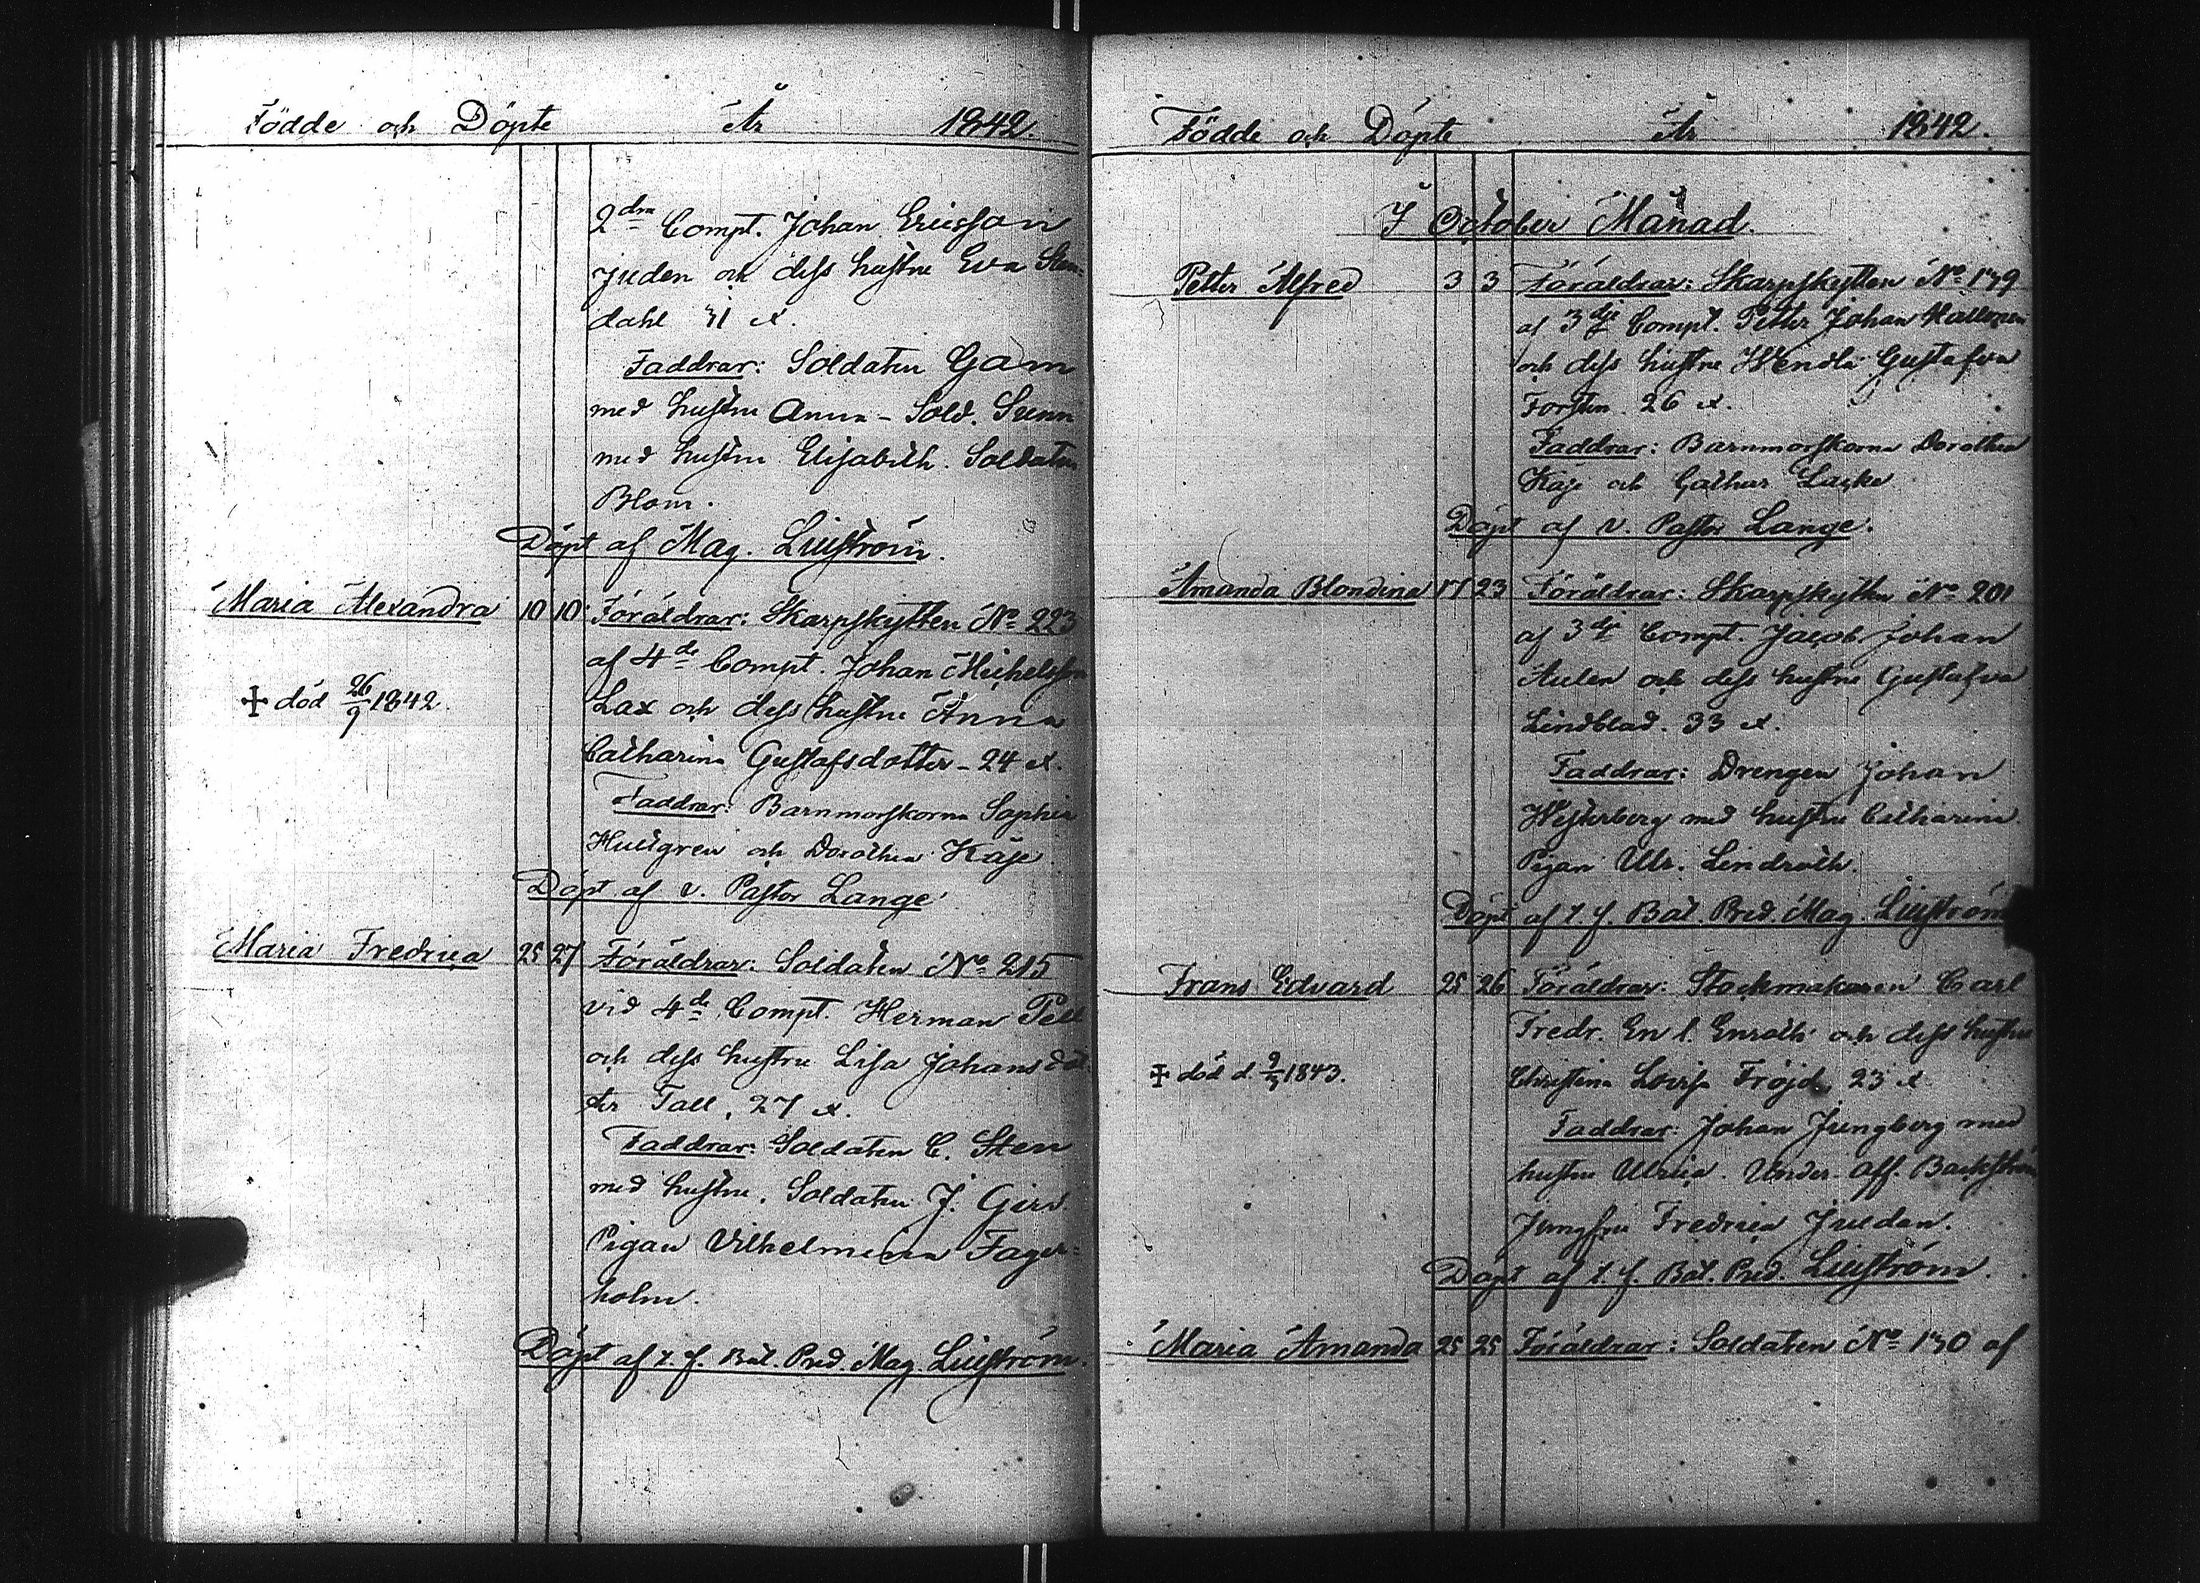 Födde och Döpte År 1842.
2dra Compt. Johan Ericsson
Juden och dess hustru Eva Sten-
dahl 31 x.
Faddrar: Soldaten Gam
med hustru Anna – Sold. Sunn
med hustru Elisabeth. Soldaten
Blom.
Döpt af Mag. Liliström.
Maria Alexandra 10 10 Föräldrar: Skarpskytten No 223
af 4de Compt. Johan Michelsson
✝ död 26/9 1842.
Lax och dess hustru Anna
Catharina Gustafsdotter – 24 x.
Faddrar: Barnmorskorna Sophia
Hultgren och Dorothea Käje.
Döpt af v. Pastor Lange
Maria Fredrica 25 27 Föräldrar: Soldaten No 215
vid 4de Compt. Herman Pell
och dess hustru Lisa Johansdot-
ter Tall, 27 x.
Faddrar: Soldaten C. Sten
med hustru. Soldaten J. Girs.
Pigan Vilhelmina Fager-
holm.
Döpt af t. f. Bat. Pred. Mag. Liliström.
Födde och Döpte År 1842.
I October Månad.
Petter Alfred 3 3 Föräldrar: Skarpskytten No 139
af 3dje Compt. Petter Johan
och dess hustru Wendla Gustafva
Forstén 26 x.
Faddrar: Barnmorskorna Dorothea
Käje och Cathar. Lacke
Döpt af v. Pastor Lange.
Amanda Blondina 17 23 Föräldrar: Skarpskytten No 201
af 3dje Compt. Jacob Johan
Aulen och dess hustru Gustafva
Lindblad. 33 x.
Faddrar: Drengen Johan
Westerberg med hustru Catharina.
Pigan Ulr. Lindroth.
Döpt af t. f. Bat. Pred. Mag. Liliström
Frans Edvard 25 26 Föräldrar: Stockmakaren Carl
Fredr. En l. Enroth och dess hustru
✝ död d. 9/3 1843.
Christina Lovisa Fröjd, 23 x.
Faddrar: Johan Jungberg med
hustru Ulrica. Under-off. Backström
Jungfru Fredrica Juedan.
Döpt af t. f. Bat. Pred. Liliström.
Maria Amanda 25 25 Föräldrar: Soldaten No 130 af